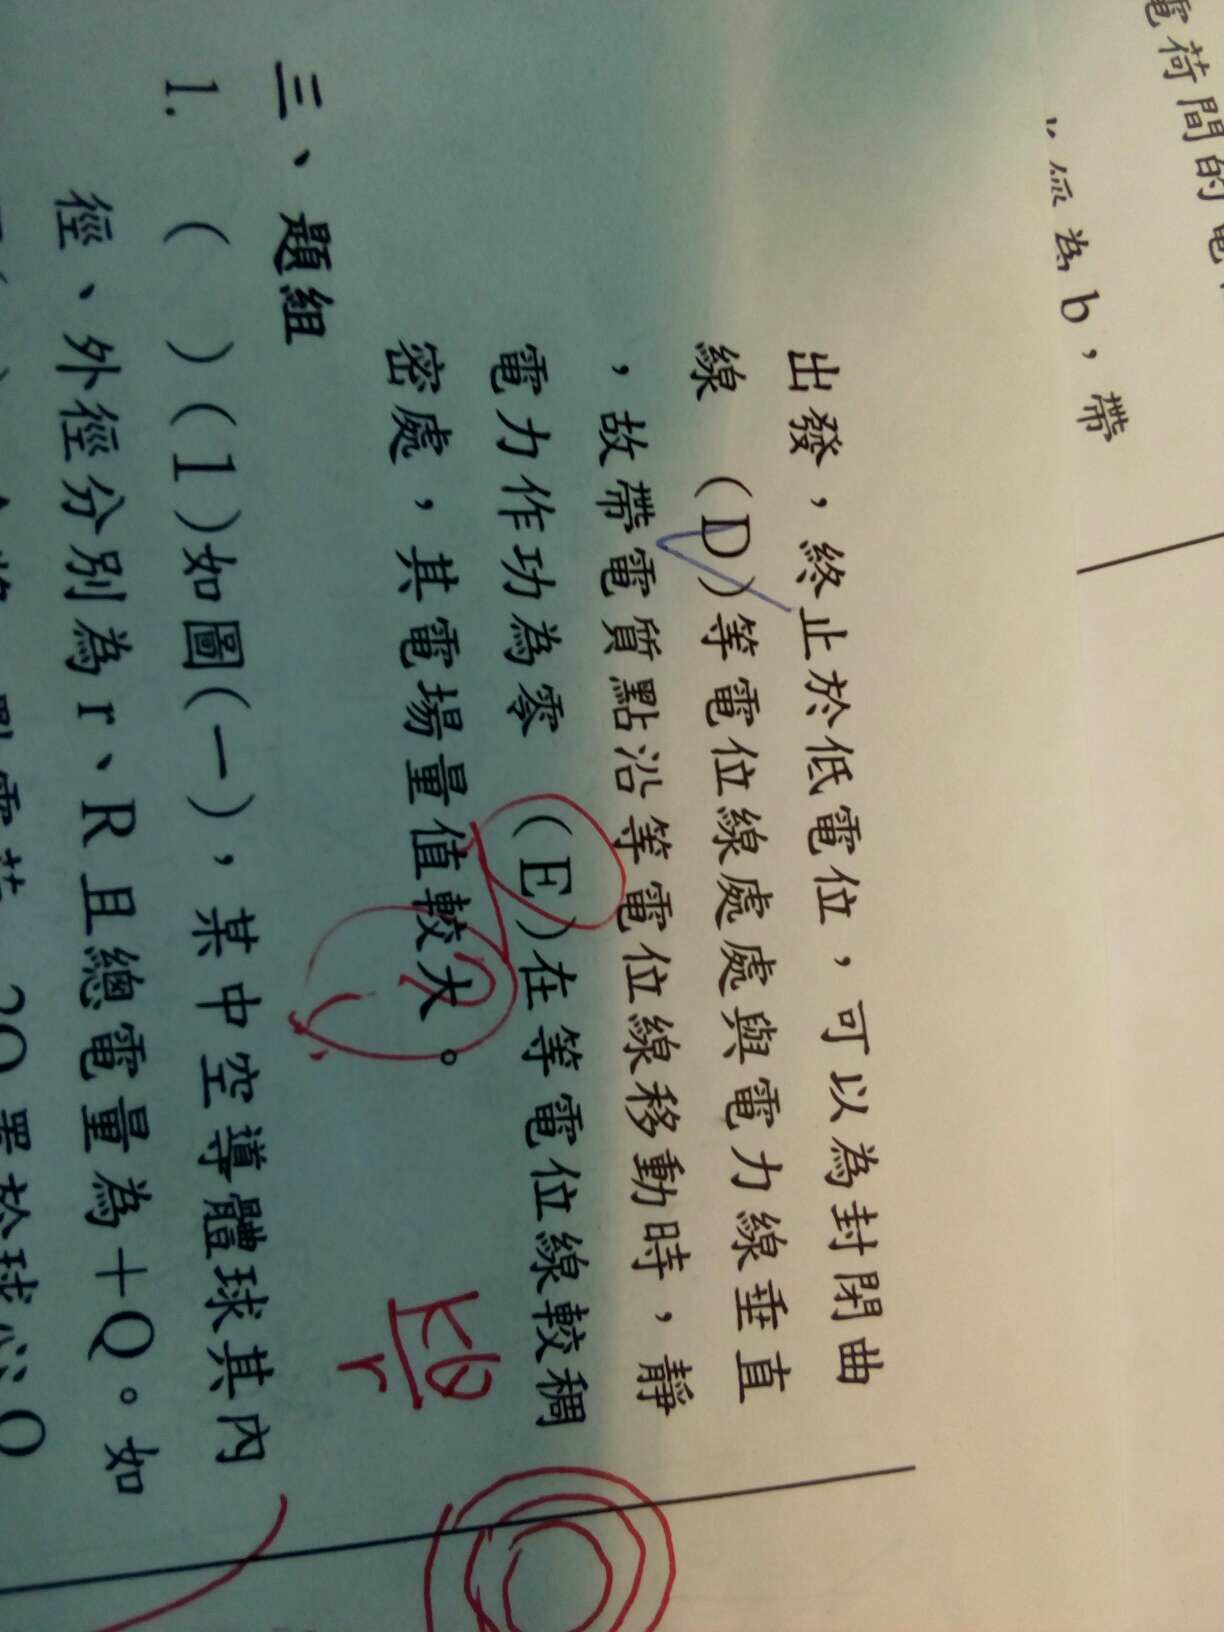 電荷間的電
為b，帶
出發，終止於低電位，可以為封閉曲
線 (D)等電位線處處與電力線垂直
，故帶電質點沿等電位線移動時，靜
電力作功為零 (E)在等電位線較稠
密處，其電場量值較大。
kQ
r
三、題組
1. ( )(1)如圖(一)，某中空導體球其內
徑、外徑分別為r、R且總電量為+Q。如